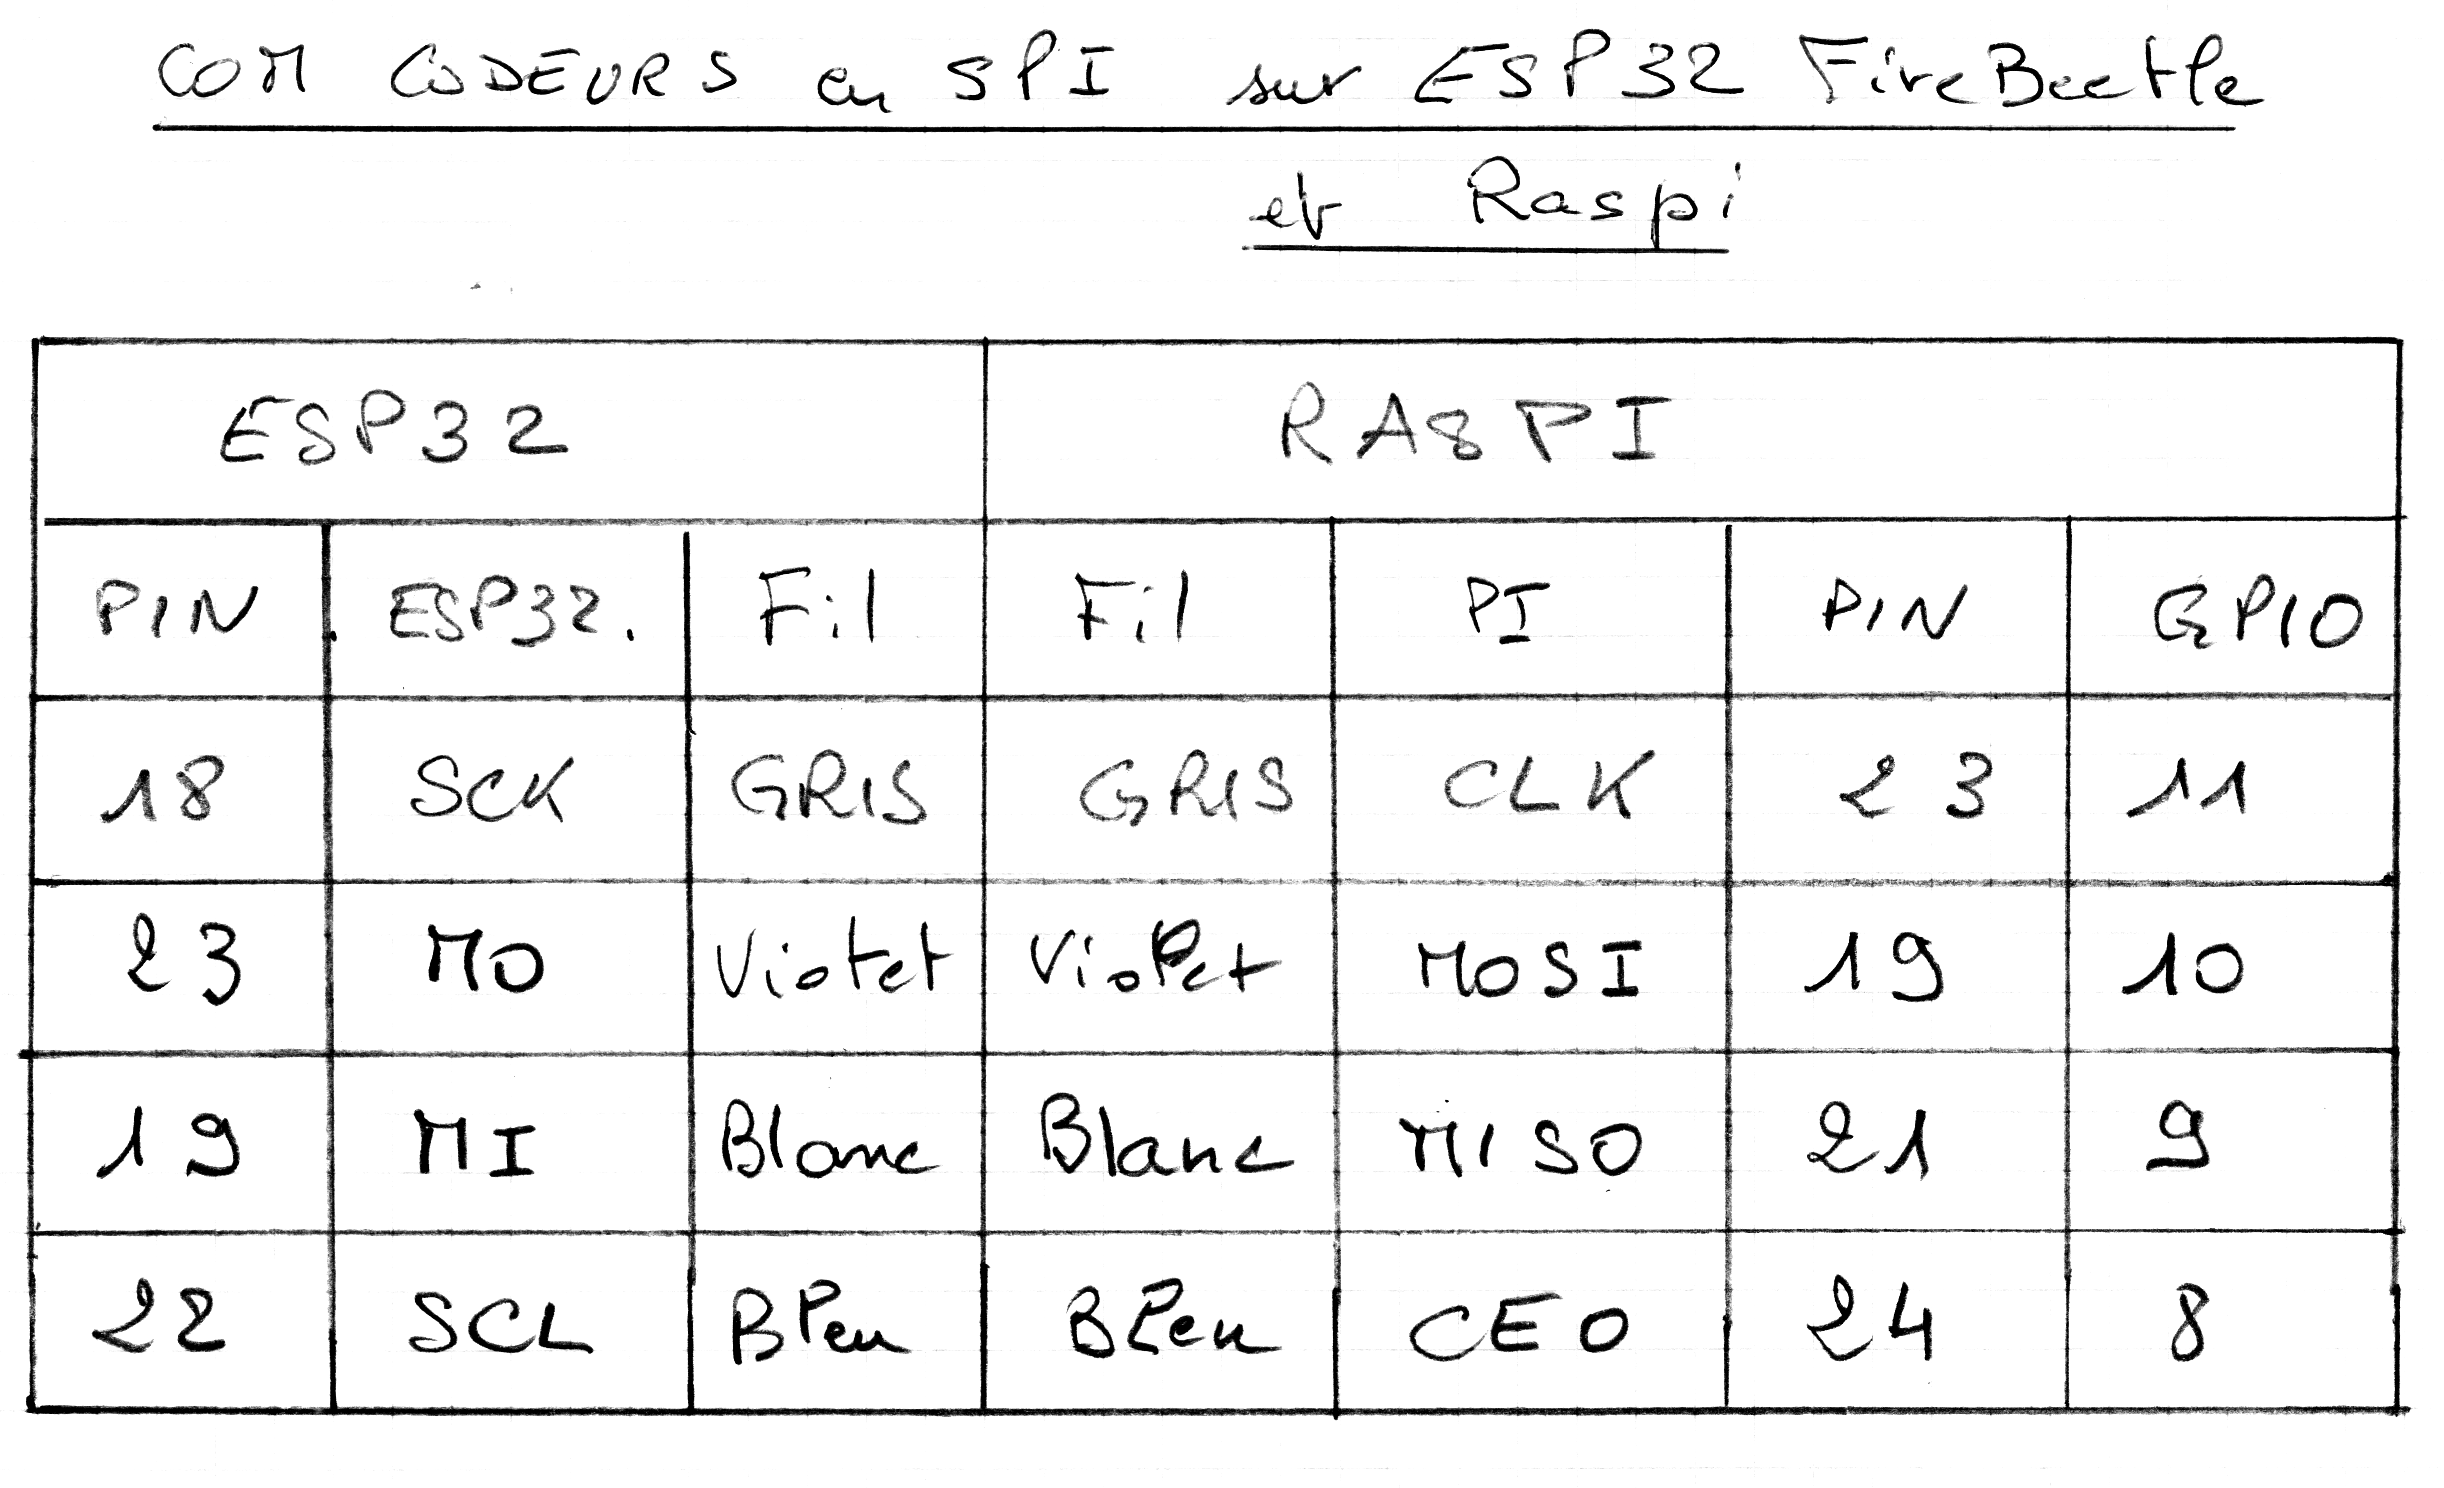 COM CODEURS en SPI sur ESP32 FireBeetle
et Raspi
ESP32 RASPI
PIN ESP32. Fil Fil PI PIN GPIO
18 SCK GRIS GRIS CLK 23 11
23 MO Violet Violet MOSI 19 10
19 MI Blanc Blanc MISO 21 9
22 SCL Bleu Bleu CE0 24 8